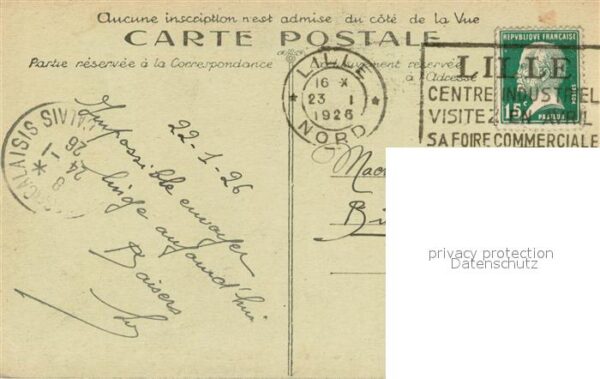 Aucune inscription n'est admise du côté de la Vue
CARTE POSTALE
Partie réservée à la Correspondance
réservée
à l'Adresse
LILLE
16 X
23 1
1926
NORD
REPUBLIQUE FRANÇAISE
15c
POSTES
PASTEUR
LILLE
CENTRE INDUSTRIEL
VISITEZ EN AVRIL
SA FOIRE COMMERCIALE
CALAISIS
8
24-1
26
22-1-26
Impossible envoyer
linge aujourd'hui
Baisers
privacy protection
Datenschutz